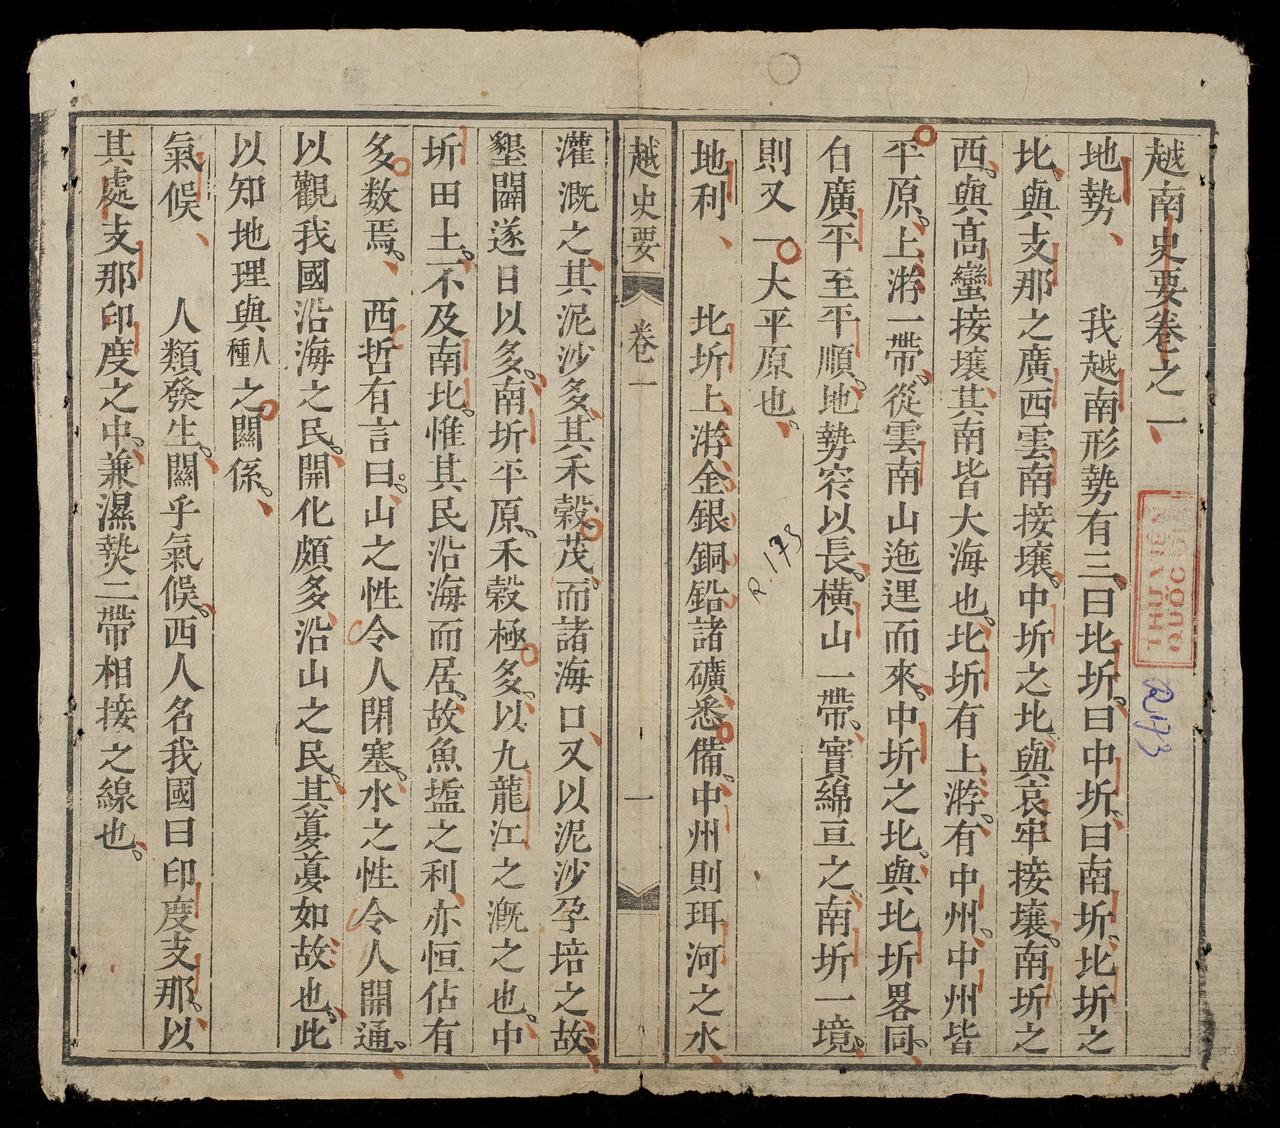 越南史要卷之一
地勢　我越南形勢有三曰北圻曰中圻曰南圻北圻之
北與支那之廣西雲南接壤中圻之北與哀牢接壤南圻之
西與高蠻接壤其南皆大海也北圻有上游有中州中州皆
平原上游一帶從雲南山迤邐而來中圻之北與北圻畧同
自廣平至平順地勢窄以長橫山一帶實綿亘之南圻一境
則又一大平原也
地利　北圻上游金銀銅鉛諸礦悉備中州則珥河之水
越史要
卷一
一
灌溉之其泥沙多其禾穀茂而諸海口又以泥沙孕培之故
墾闢遂日以多南圻平原禾穀極多以九龍江之溉之也中
圻田土不及南北惟其民沿海而居故魚塩之利亦恒佔有
多数焉　西哲有言曰山之性令人閉塞水之性令人開通
以觀我國沿海之民開化頗多沿山之民其戞戞如故也此
以知地理與人種之關係
氣候　人類發生關乎氣候西人名我國曰印度支那以
其處支那印度之中兼濕熱二帶相接之線也
THƯ VIỆN
QUỐC GIA
R.173
R.173